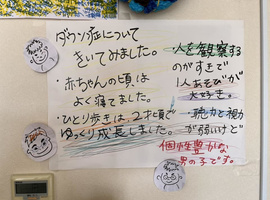 ダウン症について
きいてみました。
・赤ちゃんの頃は
よく寝てました。
・ひとり歩きは、2才頃で
ゆっくり成長しました。
・人を観察する
のがすきで
1人あそびが
大好き。
・聴力と視力
が弱いけど
個性豊かな
男の子です。